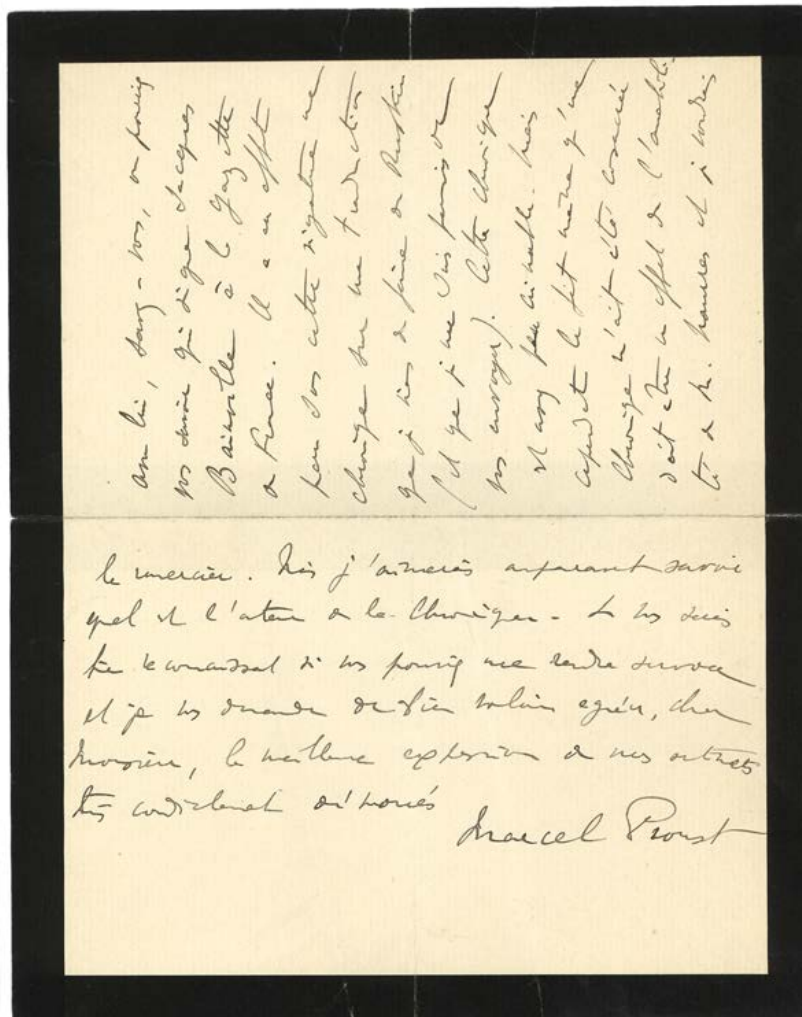 avec lui, savez-vous, ou pouvez
vous savoir qui signe Jacques
Bainville à la Gazette
de France. Il a en effet
paru sous cette signature une
chronique sur une traduction
que je viens de faire de Ruskin
(et que je me suis permis de
vous envoyer). Cette chronique
est assez peu aimable. Mais
cependant le fait même qu'une
chronique m'ait été consacrée
doit être un effet de l'amabili-
té de M. Maurras et je voudrais
le remercier. Mais j'aimerais auparavant savoir
quel est l'auteur de la Chronique. Je vous serais
très reconnaissant si vous pouviez me rendre service
et je vous demande de bien vouloir agréer, cher
Monsieur, la meilleure expression de mes sentiments
très cordialement dévoués
Marcel Proust